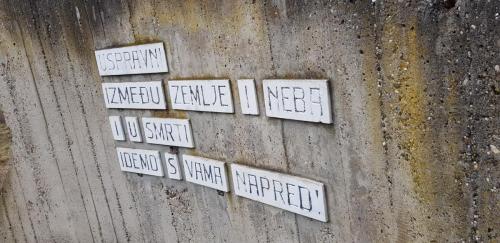 USPRAVNI
IZMEĐU ZEMLJE I NEBA
I U SMRTI
IDEMO S VAMA NAPRED!